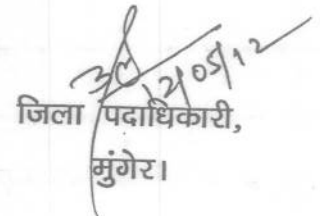 12/05/12
जिला पदाधिकारी,
मुंगेर।